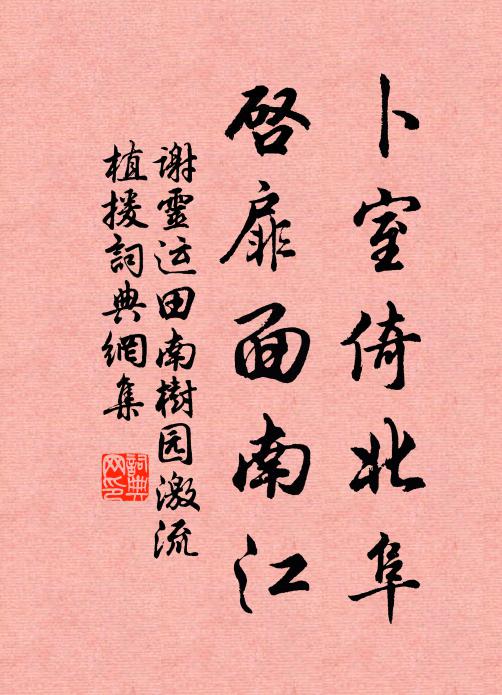 卜室倚北阜
启扉面南江
谢靈运田南樹园激流
植援詞典網集
詞典网印